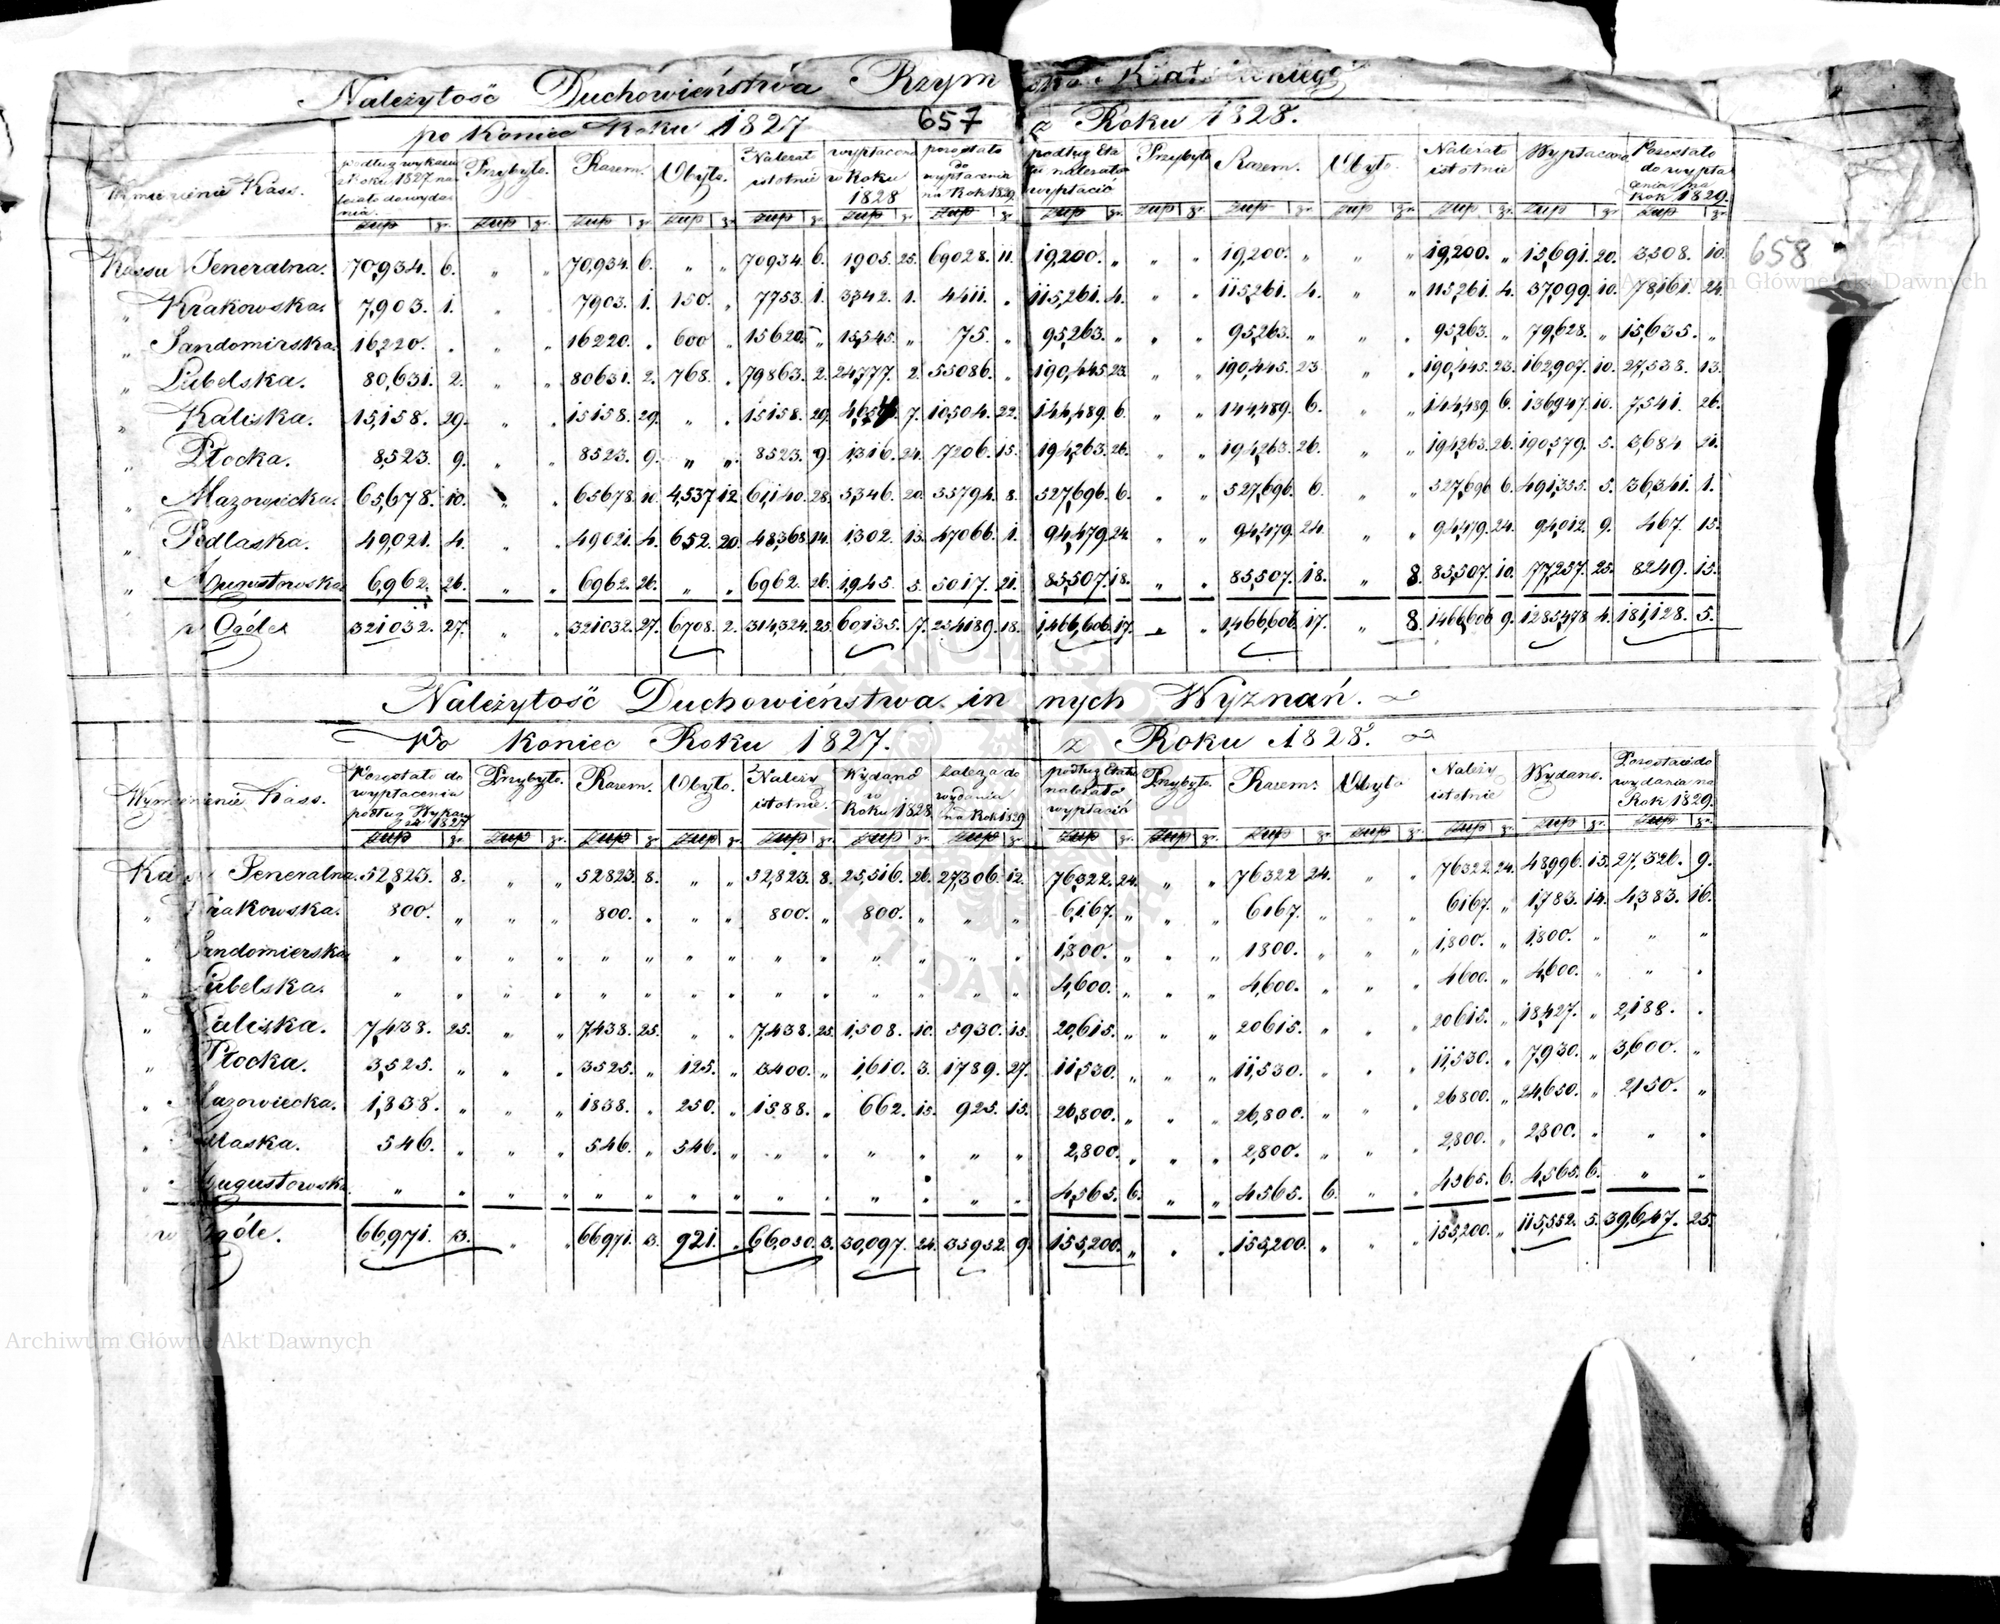 Należytość Duchowieństwa Rzymsko Katolickiego
po Koniec Roku 1827 657 z Roku 1828.
Wymienienie Kass. podług wykazu z Roku 1827 należało do wydania. Przybyło. Razem. Ubyło. Należało istotnie wypłacono w Roku 1828 pozostało do wypłacenia na Rok 1829. podług Etatu należało wypłacić Przybyło Razem. Ubyło. Należało istotnie Wypłacono Pozostało do wypłacenia na Rok 1829.
złlp gr. złlp gr. złlp gr. złlp gr. złlp gr. złlp gr. złlp gr. złlp gr. złlp gr. złlp gr. złlp gr. złlp gr. złlp gr. złlp gr.
Kassa Jeneralna. 70,934. 6. " " 70,934. 6. " " 70934. 6. 1,905. 25. 69028. 11. 19,200. " " " 19,200. " " " 19,200. " 15,691. 20. 3,508. 10. 658
" Krakowska. 7,903. 1. " 7903. 1. 150. " 7753. 1. 3,342. 1. 4411. " 115,261. 4. " " 115,261. 4. " " 115,261. 4. 37,099. 10. 78,161. 24.
" Sandomirska. 16,220. " " " 16220. " 600 " 15620. " 15,545. " 75. " 95,263. " " " 95,263. " " " 95,263. " 79,628. " 15,635. "
" Lubelska. 80,631. 2. " " 80631. 2. 768. " 79863. 2. 24,777. 2. 55086. " 190,445 23. " " 190,445. 23 " " 190,445. 23. 162,907. 10. 27,538. 13.
" Kaliska. 15,158. 29. " " 15158. 29. " " 15158. 29. 4,654 7. 10,504. 22. 144,489. 6. " " 144,489. 6. " " 144,489 6. 136,947. 10. 7,541. 26.
" Płocka. 8,523. 9. " " 8523. 9. " " 8523. 9. 1,316. 24. 7206. 15. 194,263. 26. " " 194,263. 26. " " 194,263. 26. 190,579. 5. 3,684 21.
" Mazowiecka. 65,678. 10. " " 65678. 10. 4,537 12. 61,140. 28. 5,346. 20. 55794. 8. 527,696. 6. " " 527,696. 6. " " 527,696 6. 491,355. 5. 36,341. 1.
" Podlaska. 49,021. 4. " " 49021. 4. 652. 20. 48,368 14. 1,302. 13. 47066. 1. 94,479 24. " " 94,479. 24. " " 94,479. 24. 94,012. 9. 467. 15.
" Augustowska. 6,962. 26. " " 6962. 26. " " 6962. 26. 1,945. 5. 5017. 21. 85,507. 18. " " 85,507. 18. " 8. 85,507. 10. 77,257. 25. 8249. 15.
w Ogóle 321032. 27. " " 321032. 27. 6708. 2. 314,324. 25. 60,135. 7. 254189. 18. 1,466,606. 17. " " 1,466,606. 17. " 8. 1466,606 9. 1285,478 4. 181,128. 5.
Należytość Duchowieństwa innych Wyznań.
Po Koniec Roku 1827. z Roku 1828.
Wymienienie Kass. Pozostało do wypłacenia podług Wykazu za 1827 Przybyło. Razem. Ubyło. Należy istotnie. Wydano w Roku 1828. do wydania na Rok 1829 podług Etatu należało wypłacić Przybyło. Razem. Ubyło Należy istotnie Wydano. Pozostało do wydania na Rok 1829.
złlp gr. złlp gr. złlp gr. złlp gr. złlp gr. złlp gr. złlp gr. złlp gr. złlp gr. złlp gr. złlp gr. złlp gr. złlp gr. złlp gr.
Kassa Jeneralna. 52,823. 8. " " 52823. 8. " " 52,823. 8. 25,516. 26. 27,306. 12. 76,322. 24. " " 76322 24. " " 76322. 24. 48,996. 15. 27,326. 9.
" Krakowska. 800. " " " 800. " " " 800. " 800. " " " 6,167. " " " 6167. " " " 6167. " 1,783. 14. 4,383. 16.
" Sandomierska " " " " " " " " " " " " " " 1,800. " " " 1800. " " " 1,800. " 1,800. " " "
" Lubelska. " " " " " " " " " " " " " " 4,600. " " " 4,600. " " " 4600. " 4,600. " " "
" Kaliska. 7,438. 25. " " 7,438. 25. " " 7,438. 25. 1,508. 10. 5930. 15. 20,615. " " " 20615. " " " 20615. " 18,427. " 2,188. "
" Płocka. 3,525. " " " 3525. " 125. " 3400. " 1,610. 3. 1789. 27. 11,530. " " " 11,530. " " " 11,530. " 7,930. " 3,600. "
" Mazowiecka. 1,838. " " " 1838. " 250. " 1588. " 662. 15. 925. 15. 26,800. " " " 26,800. " " " 26800. " 24,650. " 2,150. "
" Podlaska. 546. " " " 546. " 546. " " " " " " " 2,800. " " " 2,800. " " " 2,800. " 2,800. " " "
" Augustowska " " " " " " " " " " " " " " 4,565. 6. " " 4565. 6. " " 4565. 6. 4,565. 6. " "
w Ogóle. 66,971. 3. " " 66971. 3. 921. " 66,050. 3. 30,097. 24. 35952. 9. 155,200. " " " 155,200. " " " 155,200. " 115,552. 5. 39,647. 25.
Archiwum Główne Akt Dawnych
Archiwum Główne Akt Dawnych